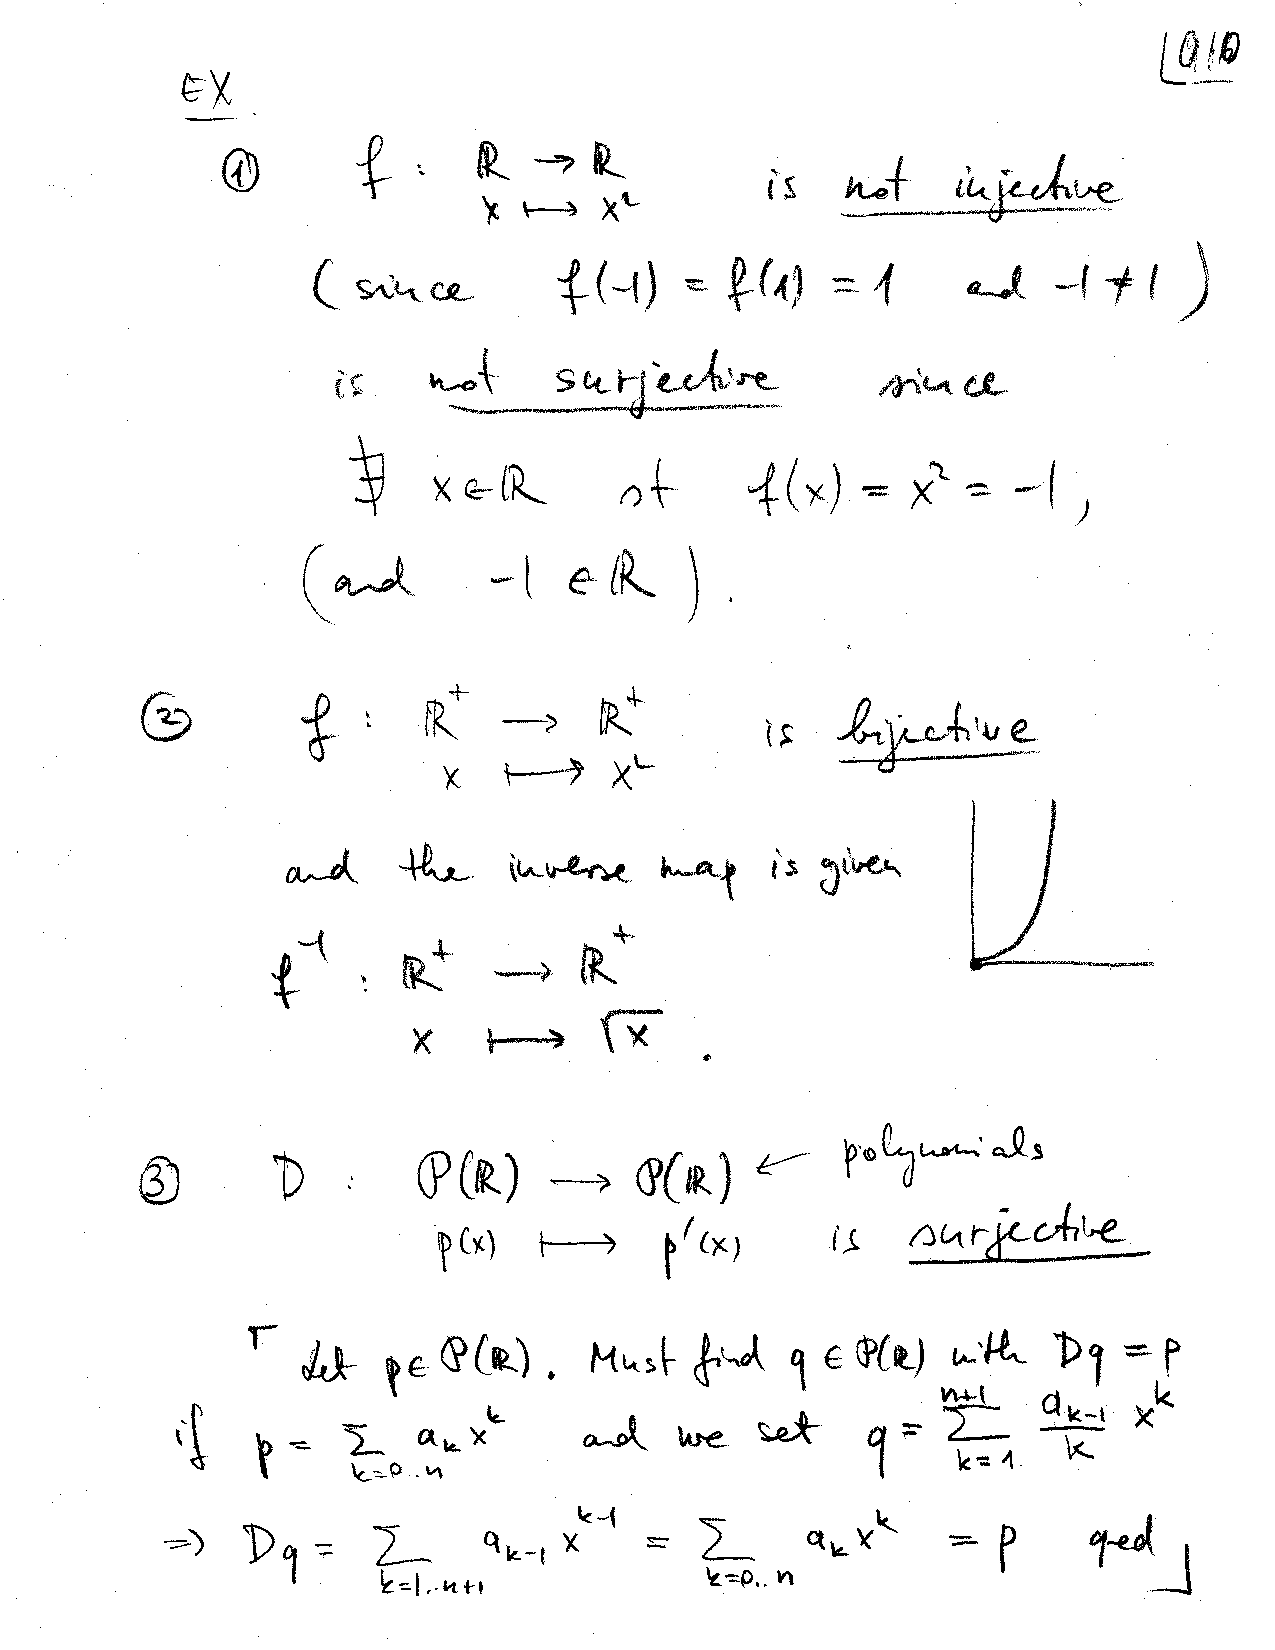 EX
① f : ℝ → ℝ is not injective
x ↦ x²
(since f(-1) = f(1) = 1 and -1 ≠ 1)
is not surjective since
∄ x ∈ ℝ st f(x) = x² = -1,
(and -1 ∈ ℝ).
② f : ℝ⁺ → ℝ⁺ is bijective
x ↦ x²
and the inverse map is given
f⁻¹ : ℝ⁺ → ℝ⁺
x ↦ √x .
③ D : P(ℝ) → P(ℝ) ← polynomials
p(x) ↦ p'(x) is surjective
⌈ Let p ∈ P(ℝ). Must find q ∈ P(ℝ) with Dq = p
if p = Σ_{k=0..n} a_k x^k and we set q = Σ_{k=1}^{n+1} a_{k-1}/k x^k
⇒ Dq = Σ_{k=1..n+1} a_{k-1} x^{k-1} = Σ_{k=0..n} a_k x^k = p qed ⌋